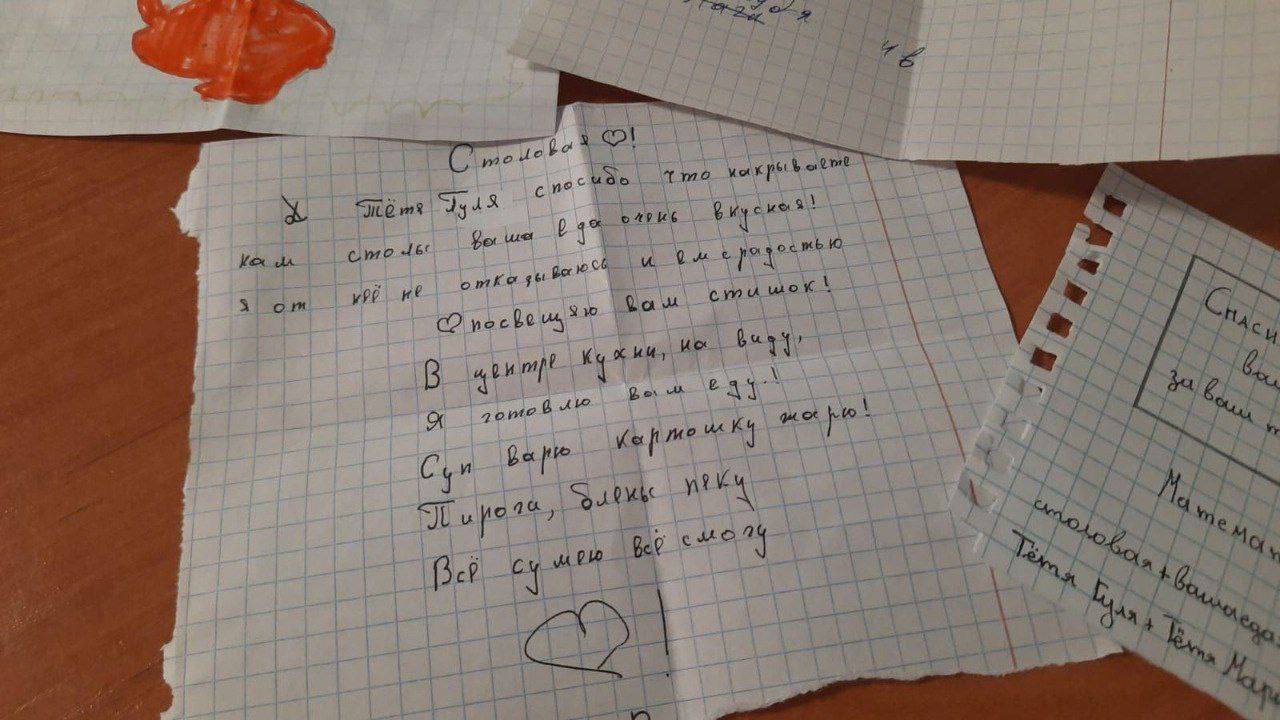 4 в
Столовая ♡!
Тётя Гуля спосибо что накрываете
нам столы ваша еда очень вкусная!
я от неё не отказываюсь и ем с радостью
♡ посвещяю вам стишок!
В центре кухни, на виду,
Я готовлю вам еду.!
Суп варю картошку жарю!
Пирога, блены пеку
Всё сумею всё смогу
!
за ваш
столовая + ваша еда
Тётя Гуля + Тётя